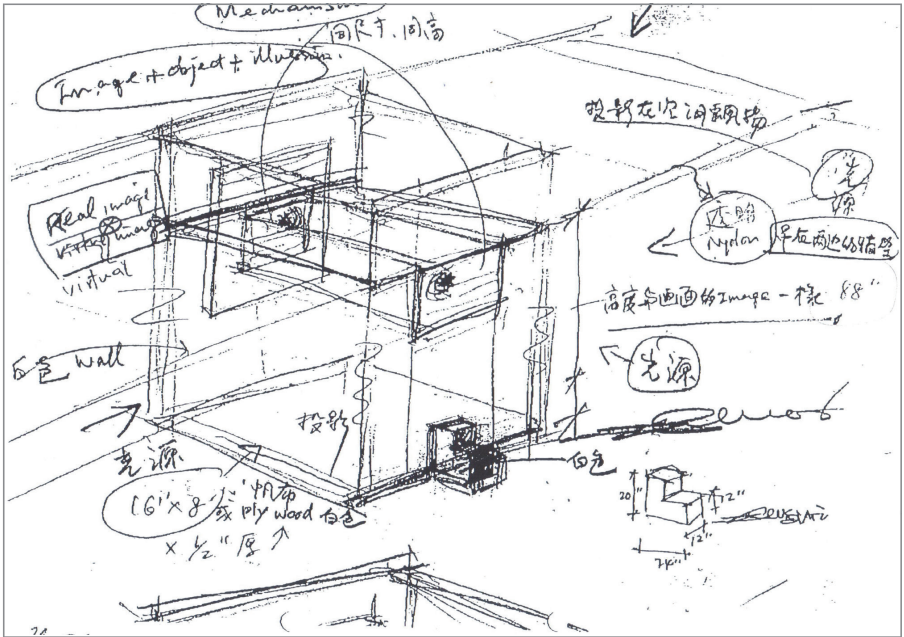 Mechanism
同尺寸、同高
Image + object + illusion.
投影在空洞飄揚
光
源
Real image
virtual image
virtual
Nylon
高度與画面的Image一樣 88"
光源
白色 Wall
投影
白色
光源
16"x8'
帆布
或 plywood 白色
x 1/2" 厚
20"
12"
12"
24"